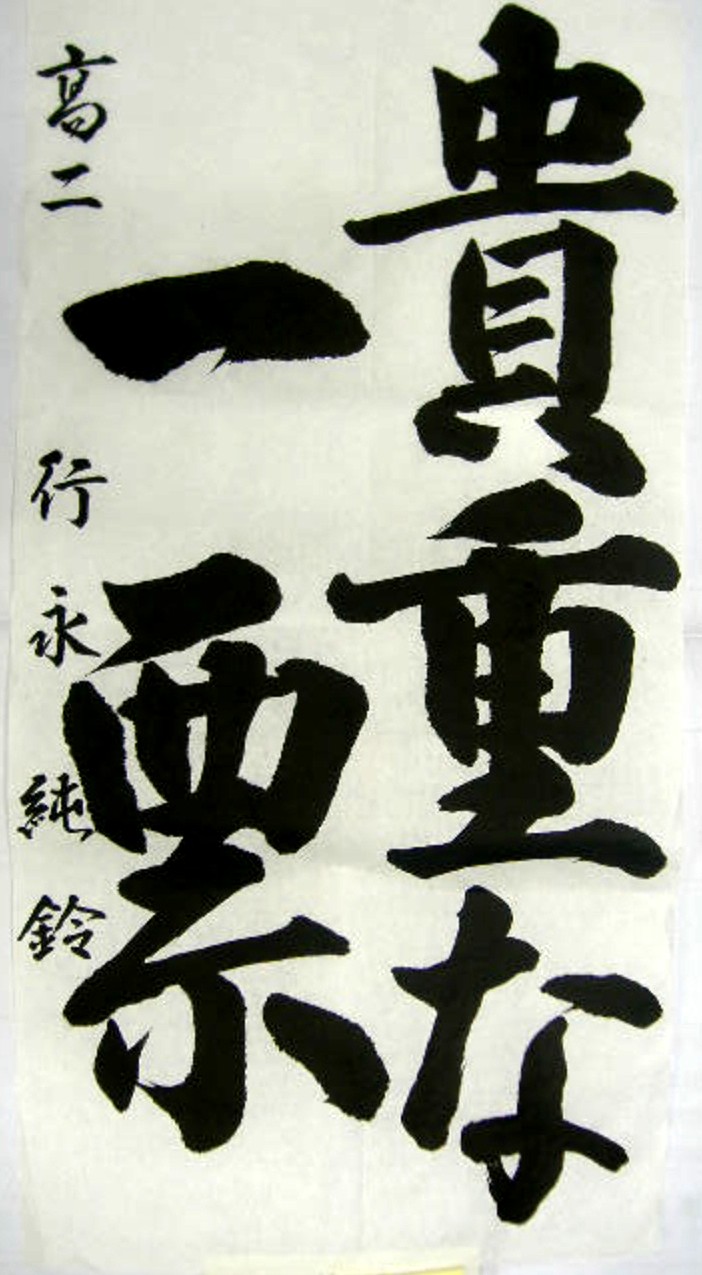 貴重な
一票
高二 行永純鈴